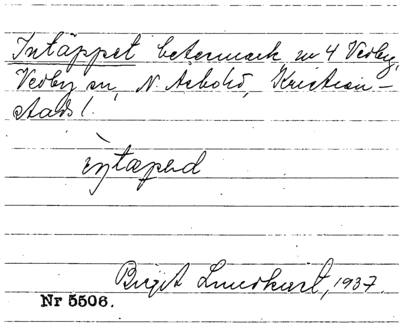 Intäppet betesmark nr 4 Vedby,
Vedby sn, N. Åsbohd, Kristian-
stads l.
Birgit Lundkvist, 1937.
Nr 5506.